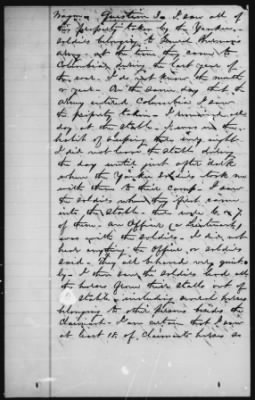 Wagon. Question 3. I saw all of
the property taken by the Yankee
soldies belonging to General Sherman's
army at the time they came to
Columbia during the last year of
the war. I do not know the month
or year. On the same day that the
Army entired Columbia I saw
the property taken. I remained all
day at the stable. I was in the
habit of sleeping there every night
I did not leave the stable during
the day until just after dark
when the Yankee Soldies took me
with them to their camp. I saw
the soldies when they first came
into the stable. There were 6 or 7
of them. An Officer (a Lieutenant)
was with the soldies. I did not
hear anything the officer, or soldies
said. They all behaved very quiet-
ly. I then saw the soldies lead all
the horses from their stalls out of
stable, including several horses
belonging to other persons besides the
claimant. I am certain that I saw
at least 18 of claimants horses so